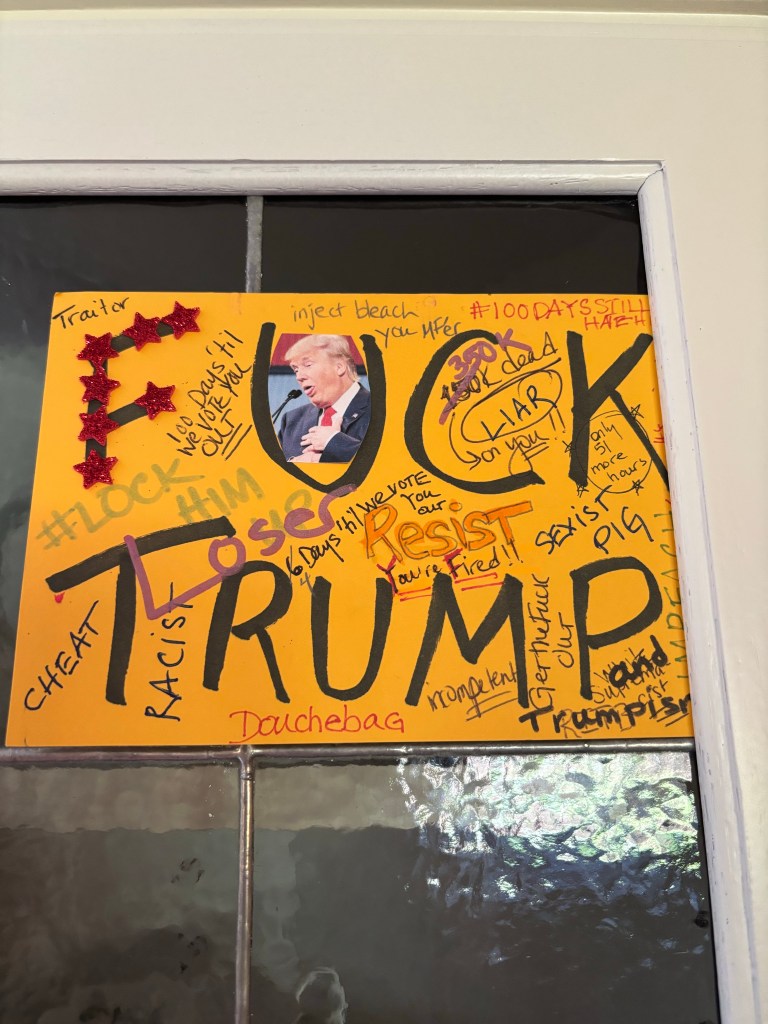 Traitor
inject bleach
you MFer
#100DAYSSTILL
HATEH
FUCK
100 Days 'til
We VOTE YOU
OUT
350K
150K dead
LIAR
on you!!
only
51
more
hours
#LOCK
HIM
UP
Loser
6 Days 'til We VOTE
4
You
our
Resist
You're Fired!!
SEXIST
PIG
TRUMP
CHEAT
RACIST
incompetent
Get the Fuck
OUT
IMPEACH
White
Suprema
cist
and
Trumpism
Douchebag